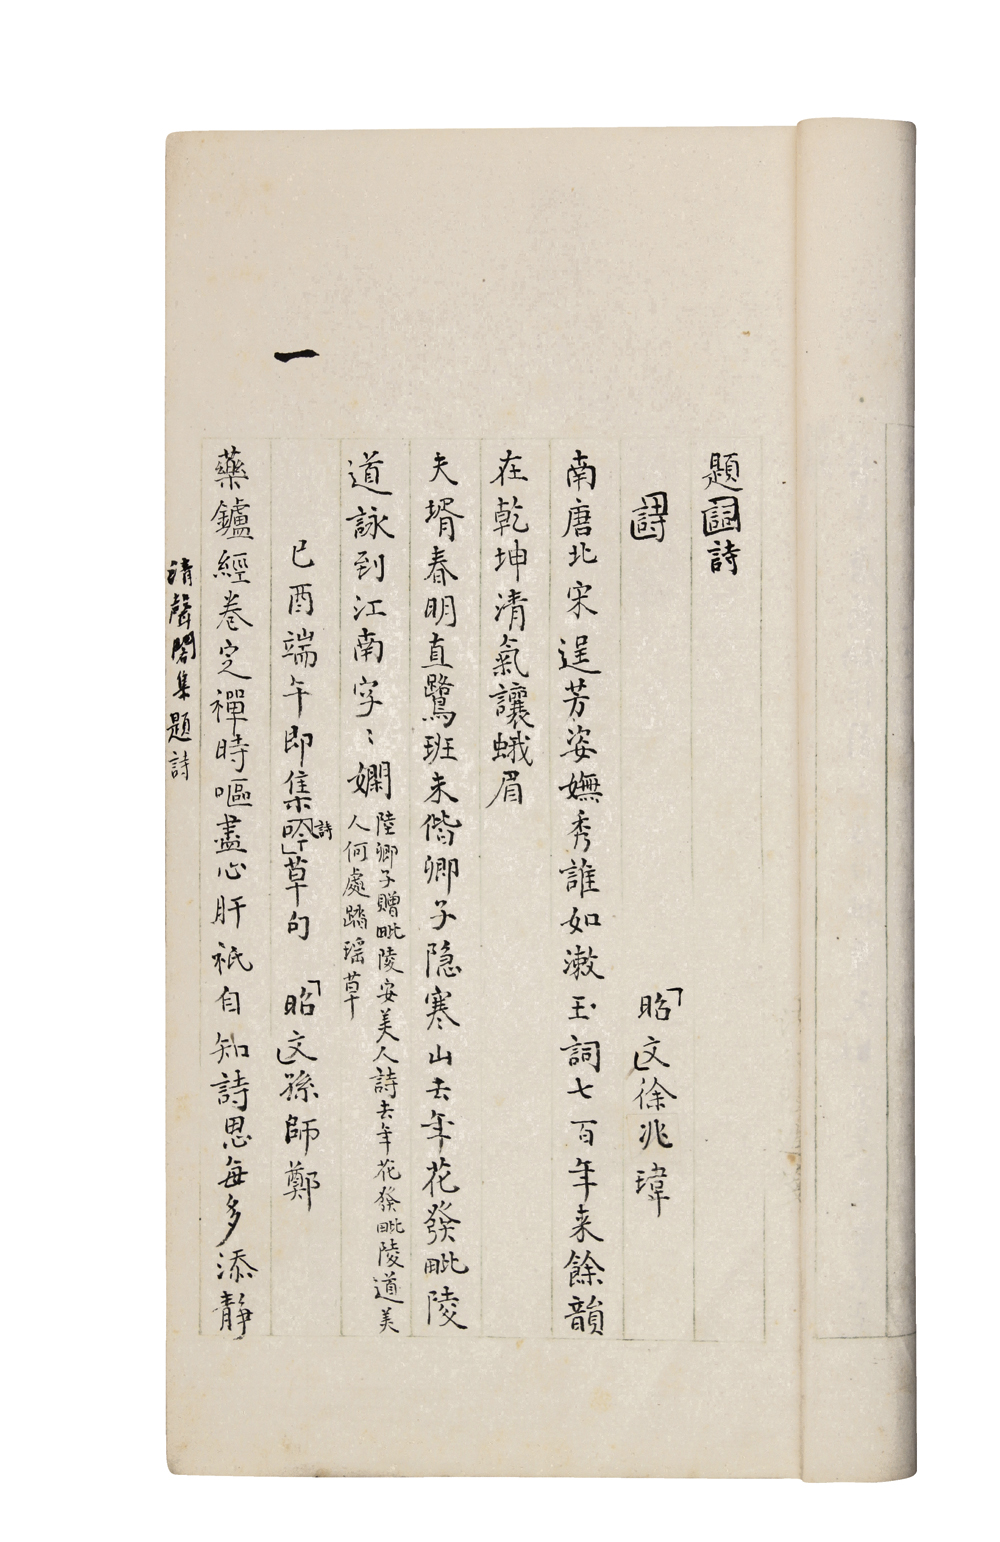 題詞詩
詩
昭文徐兆瑋
南唐北宋逞芳姿嫵秀誰如漱玉詞七百年来餘韻
在乾坤清氣讓蛾眉
夫壻春明直鷺班未偕卿子隐寒山去年花發毗陵
道詠到江南字〻嫻
陸卿子贈毗陵安美人詩去年花發毗陵道美
人何處踏瑶草
一
己酉端午即集吟詩草句
昭文孫師鄭
藥鑪經卷定禪時嘔盡心肝祇自知詩思每多添靜
清聲閣集題詩